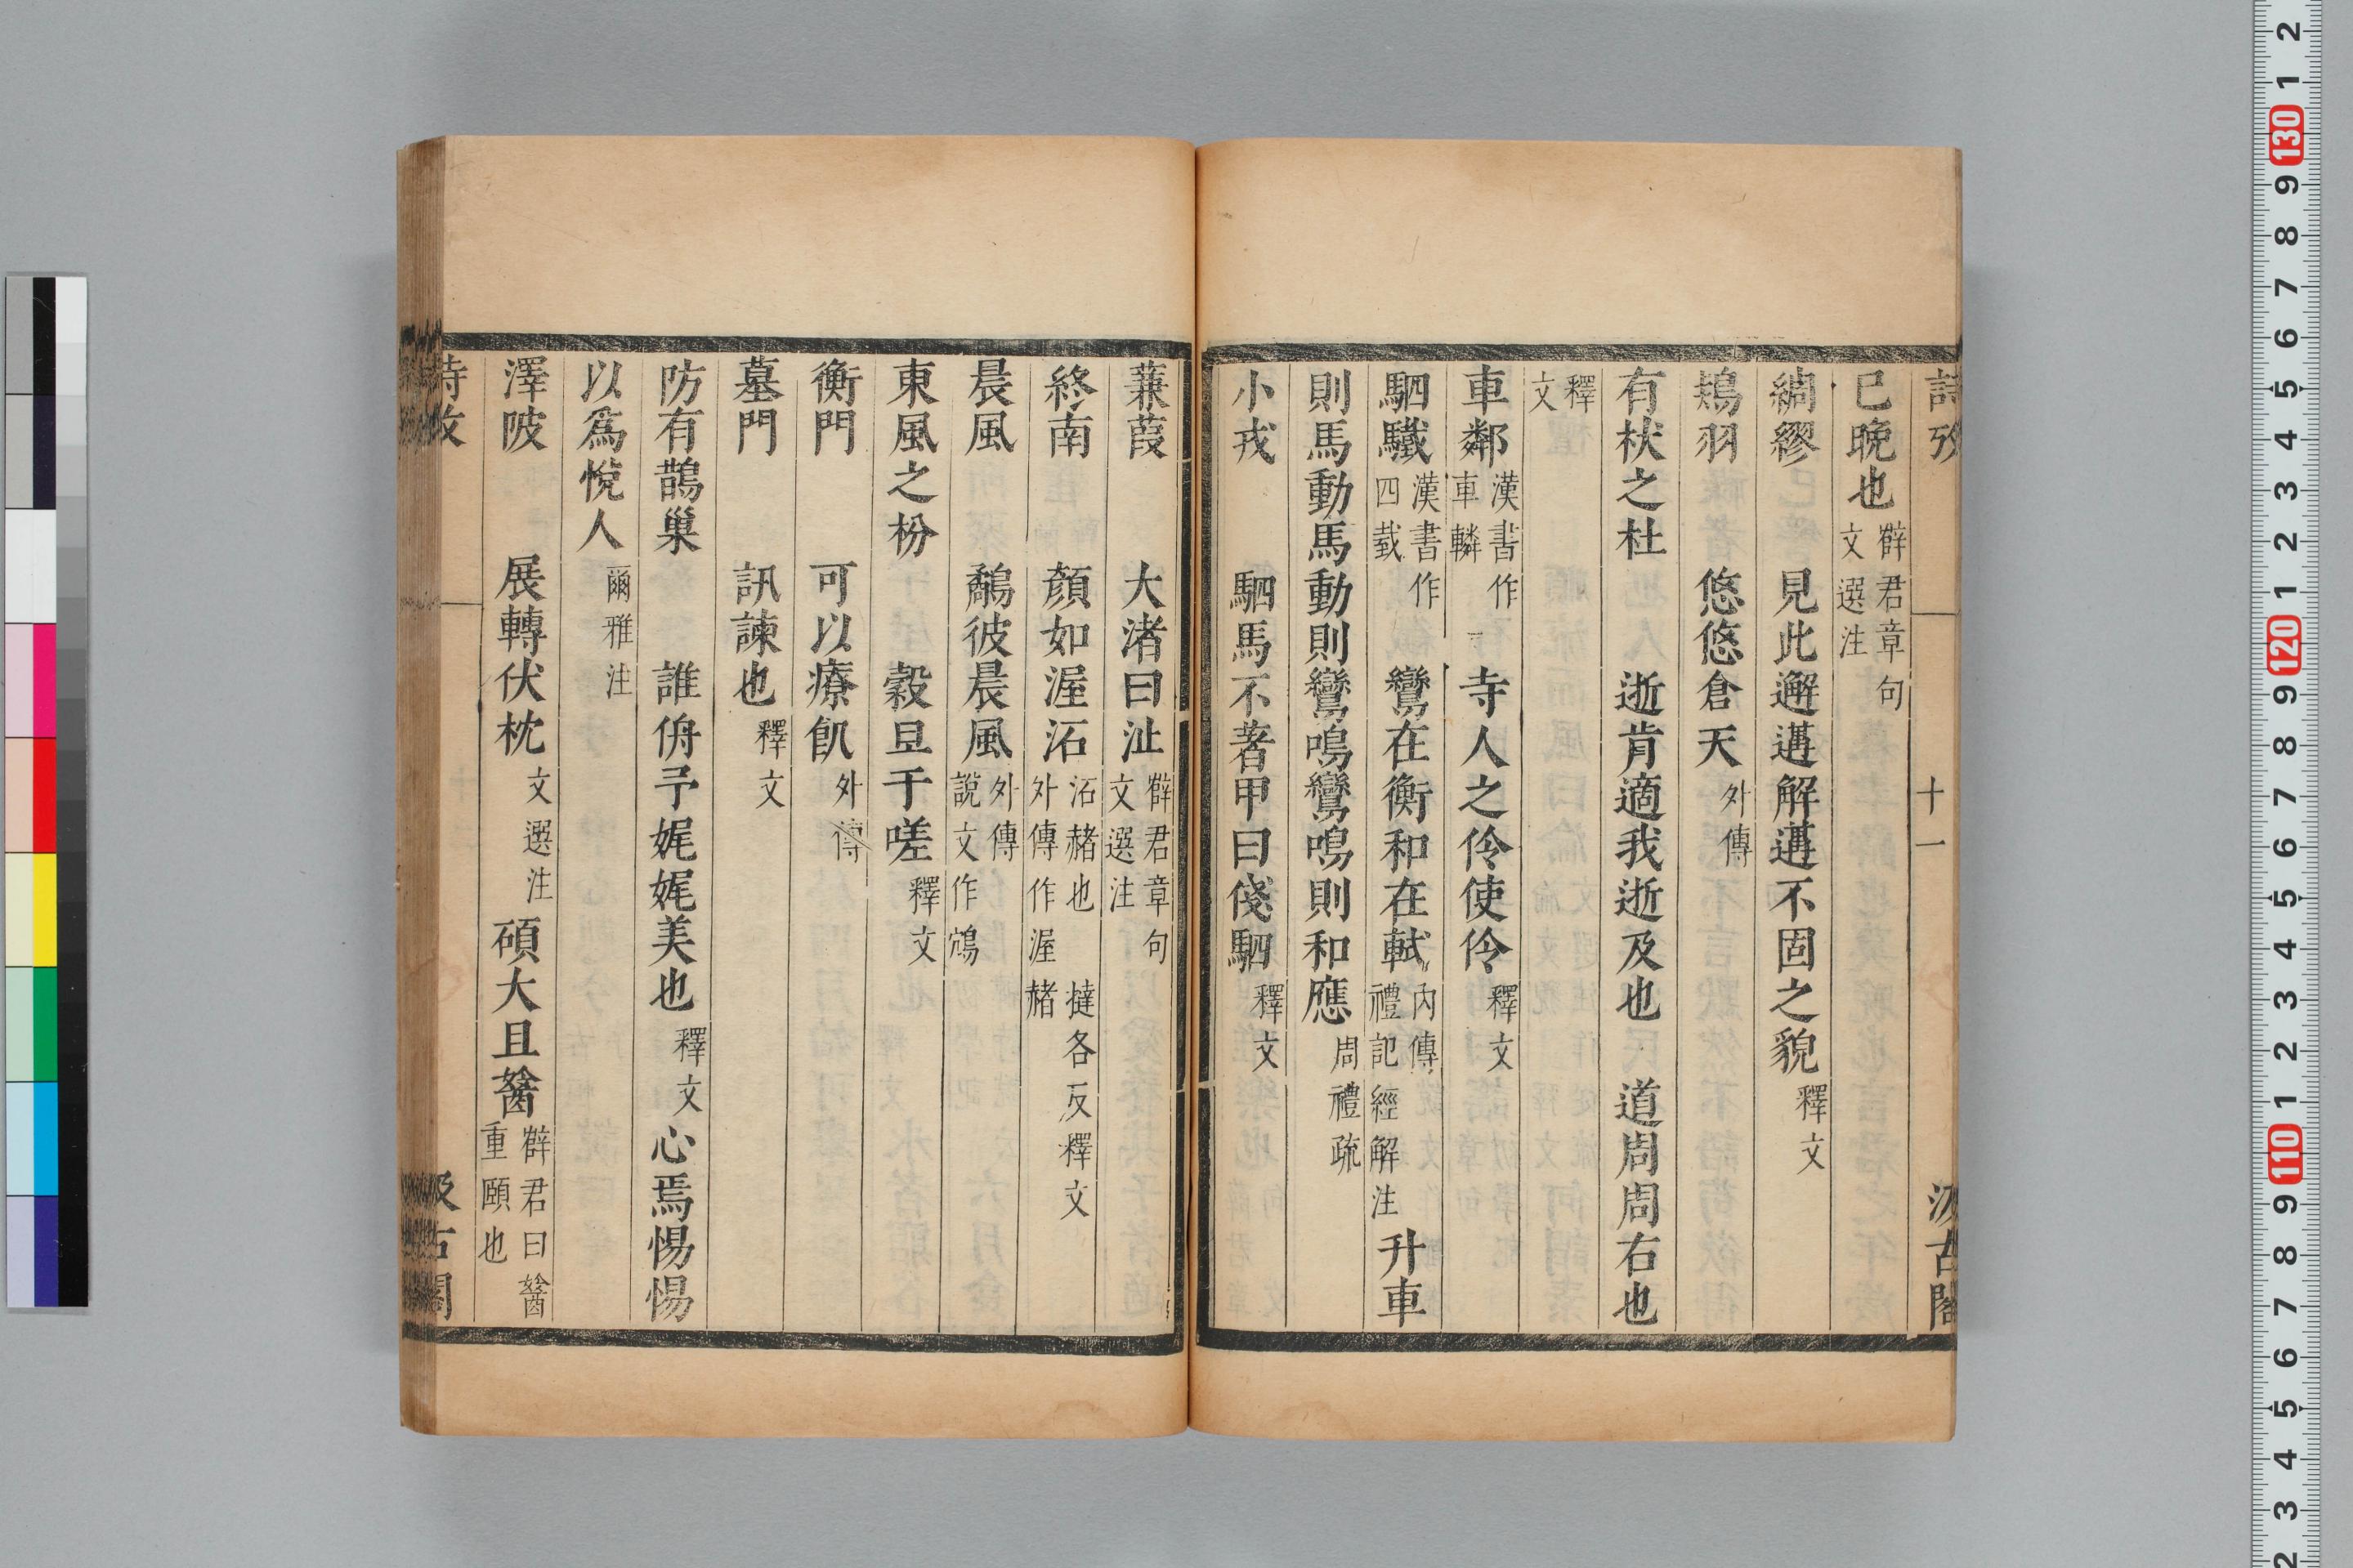 詩攷　十一　汲古閣
已晚也薛君章句文選注
綢繆　見此邂遘解遘不固之貌釋文
鴇羽　悠悠倉天外傳
有杕之杜　逝肯適我逝及也　道周周右也
釋文
車鄰漢書作車轔　寺人之伶使伶釋文
駟驖漢書作四臷　鸞在衡和在軾內傳禮記經解注升車
則馬動馬動則鸞鳴鸞鳴則和應周禮疏
小戎　駟馬不著甲曰俴駟釋文
蒹葭　大渚曰沚薛君章句文選注
終南　顏如渥沰沰赭也　撻各反釋文外傳作渥赭
晨風　鷸彼晨風外傳說文作鴥
東風之枌　穀旦于嗟釋文
衡門　可以療飢外傳
墓門　訊諫也釋文
防有鵲巢　誰侜予娓娓美也釋文心焉惕惕
以爲悅人爾雅注
澤陂　展轉伏枕文選注碩大且㜝薛君曰㜝重頤也
詩攷　汲古閣
2
1
130
9
8
7
6
5
4
3
2
1
120
9
8
7
6
5
4
3
2
1
110
9
8
7
6
5
4
3
2